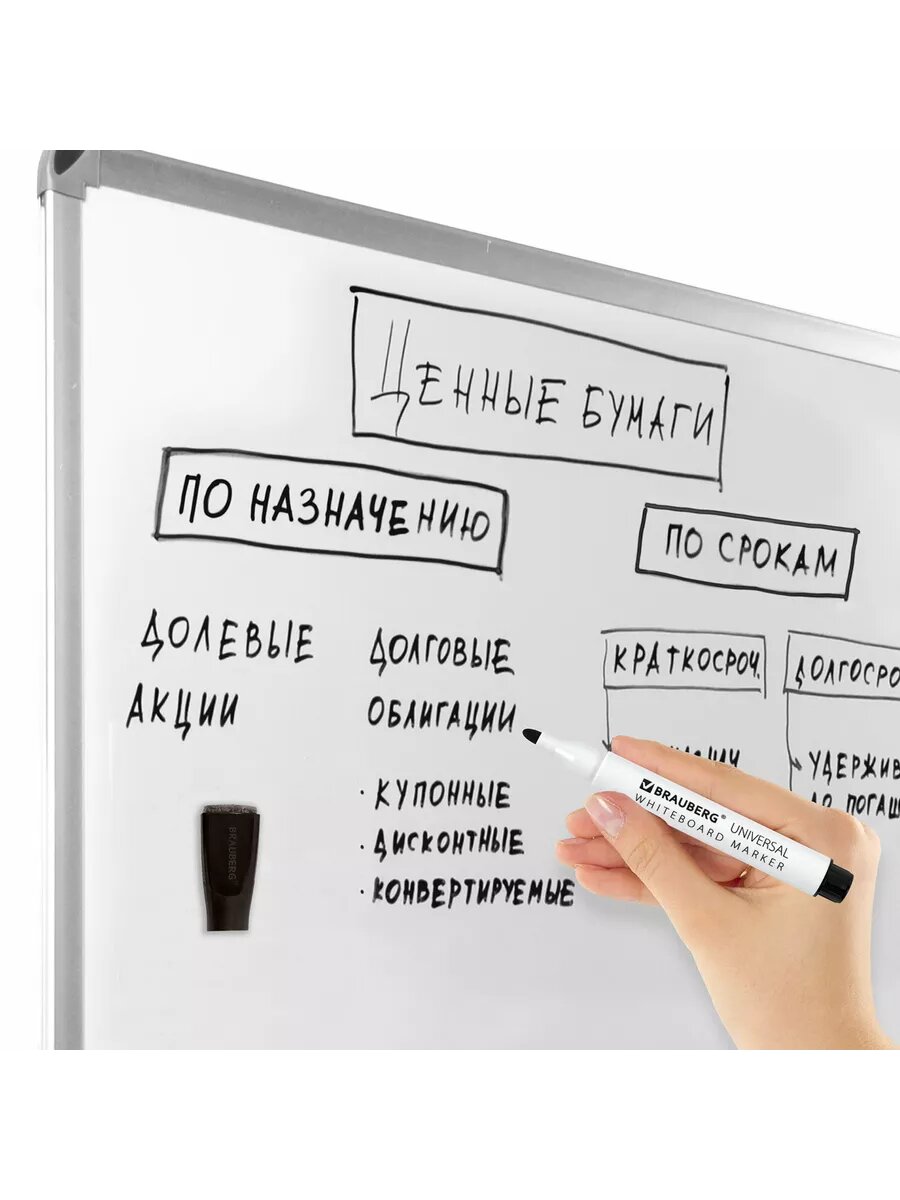 ЦЕННЫЕ БУМАГИ
ПО НАЗНАЧЕНИЮ
ПО СРОКАМ
ДОЛЕВЫЕ
АКЦИИ
ДОЛГОВЫЕ
ОБЛИГАЦИИ
· КУПОННЫЕ
· ДИСКОНТНЫЕ
· КОНВЕРТИРУЕМЫЕ
КРАТКОСРОЧ.
ДОЛГОСРО
УДЕРЖИВ
ДО ПОГАШ
BRAUBERG
BRAUBERG® UNIVERSAL
WHITEBOARD MARKER